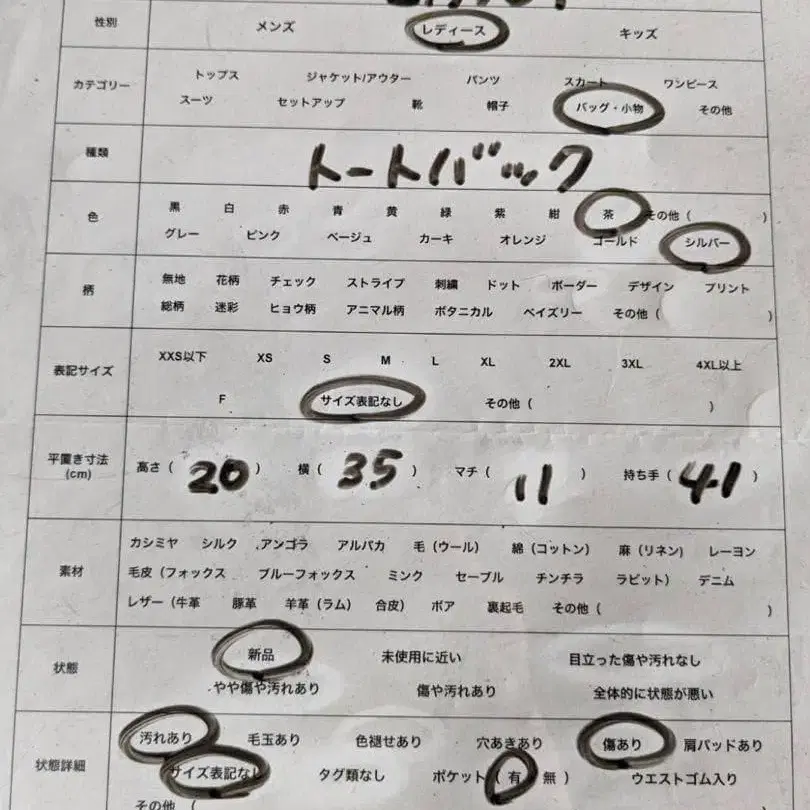 性別 メンズ レディース キッズ
カテゴリー トップス ジャケット/アウター パンツ スカート ワンピース
スーツ セットアップ 靴 帽子 バッグ・小物 その他
種類 トートバック
色 黒 白 赤 青 黄 緑 紫 紺 茶 その他 ( )
グレー ピンク ベージュ カーキ オレンジ ゴールド シルバー
柄 無地 花柄 チェック ストライプ 刺繍 ドット ボーダー デザイン プリント
総柄 迷彩 ヒョウ柄 アニマル柄 ボタニカル ペイズリー その他 ( )
表記サイズ XXS以下 XS S M L XL 2XL 3XL 4XL以上
F サイズ表記なし その他 ( )
平置き寸法 (cm) 高さ ( 20 ) 横 ( 35 ) マチ ( 11 ) 持ち手 ( 41 )
素材 カシミヤ シルク アンゴラ アルパカ 毛 (ウール) 綿 (コットン) 麻 (リネン) レーヨン
毛皮 (フォックス ブルーフォックス ミンク セーブル チンチラ ラビット) デニム
レザー (牛革 豚革 羊革 (ラム) 合皮) ボア 裏起毛 その他 ( )
状態 新品 未使用に近い 目立った傷や汚れなし
やや傷や汚れあり 傷や汚れあり 全体的に状態が悪い
状態詳細 汚れあり 毛玉あり 色褪せあり 穴あきあり 傷あり 肩パッドあり
サイズ表記なし タグ類なし ポケット ( 有 無 ) ウエストゴム入り
その他 (